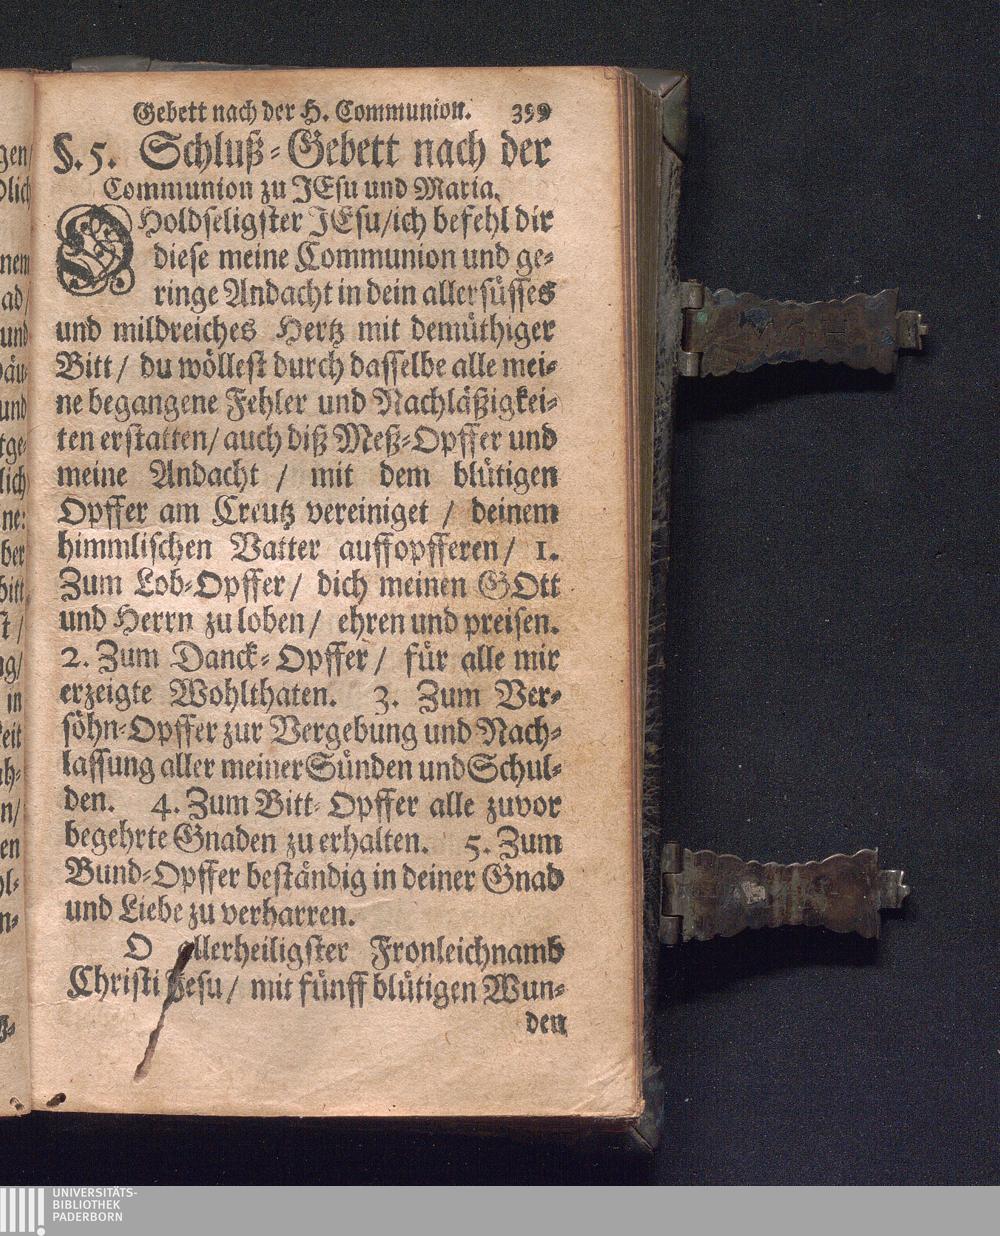 Gebett nach der H. Communion. 399
§. 5. Schluß-Gebett nach der
Communion zu JEsu und Maria.
O Holdseligster JEsu/ich befehl dir
diese meine Communion und ge-
ringe Andacht in dein allersüsses
und mildreiches Hertz mit demüthiger
Bitt / du wöllest durch dasselbe alle mei-
ne begangene Fehler und Nachläßigkei-
ten erstatten/ auch diß Meß-Opffer und
meine Andacht / mit dem blütigen
Opffer am Creutz vereiniget / deinem
himmlischen Vatter auffopfferen / 1.
Zum Lob-Opffer/ dich meinen GOtt
und Herrn zu loben/ ehren und preisen.
2. Zum Danck-Opffer/ für alle mir
erzeigte Wohlthaten. 3. Zum Ver-
söhn-Opffer zur Vergebung und Nach-
lassung aller meiner Sünden und Schul-
den. 4. Zum Bitt-Opffer alle zuvor
begehrte Gnaden zu erhalten. 5. Zum
Bund-Opffer beständig in deiner Gnad
und Liebe zu verharren.
O allerheiligster Fronleichnamb
Christi Jesu/ mit fünff blütigen Wun-
den
UNIVERSITÄTS-
BIBLIOTHEK
PADERBORN